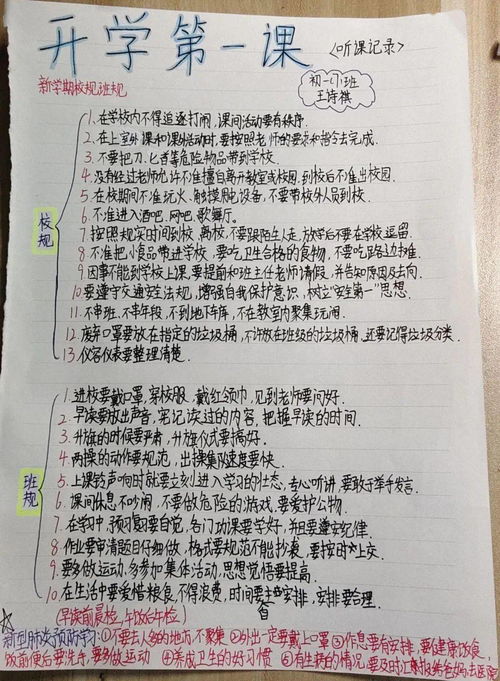 开学第一课
〈听课记录〉
初一(1)班
王诗祺
新学期校规班规
校规
1. 在学校内不得追逐打闹,课间活动要有秩序.
2. 在上室外课和课外活动时,要按照老师的要求和指令去完成.
3. 不要把刀.匕首等危险物品带到学校.
4. 没有经过老师允许不准擅自离开教室或校园,到校后不准出校园.
5. 在校期间不准玩火.触摸用电设备,不要带校外人员到校.
6. 不准进入酒吧.网吧.歌舞厅。
7. 按照规定时间到校,离校,不要跟陌生人走,放学后不要在学校逗留.
8. 不准把小食品带进学校,要吃卫生合格的食物,不要吃路边摊.
9. 因事不能到学校上课,要提前和班主任老师请假,并告知原因及去向.
10. 要遵守交通安全法规,增强自我保护意识,树立"安全第一"思想.
11. 不串班.不串年段,不到地下车库,不在教室内聚集玩闹.
12. 废弃口罩要放在指定的垃圾桶,不许放在班级的垃圾桶,还要记得垃圾分类.
13. 仪容仪表要整理清楚.
班规
1. 进校要戴口罩,穿校服,戴红领巾,见到老师要问好.
2. 早读要放出声音,牢记读过的内容,把握早读的时间.
3. 升旗的时候要严肃,升旗仪式要搞好.
4. 两操的动作要规范,出操集队速度要快.
5. 上课铃声响时就要立刻进入学习的状态,专心听讲,要敢于举手发言.
6. 课间休息不吵闹,不要做危险的游戏,要爱护公物.
7. 在学习中,预习复习要自觉,各门功课要学好,并且要遵守纪律.
8. 作业要审清题目仔细做,格式要规范不能抄袭,要按时上交.
9. 要多做运动,多参加集体活动,思想觉悟要提高.
10. 在生活中要爱惜粮食,不得浪费,时间要自主安排,安排要合理.
(早读前晨检,午饭后午检)
新型肺炎预防学习:①不要去人多的地方,不聚集 ②外出一定要戴上口罩 ③作息要有安排,要健康饮食,
饭前便后要洗手,要多做运动 ④养成卫生的好习惯 ⑤有生病的情况要及时汇报及爸妈去医院